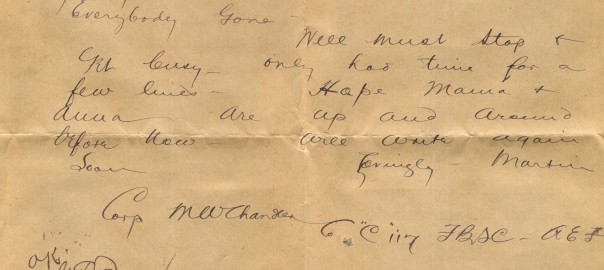 Everybody Gone -
Well must stop &
Get busy - only had time for a
few lines - Hope Mama &
Anna are up and around
before now - Will write again
Soon Lovingly - Martin
Corp MW Chandler
Co "C" 117 F.B.S.C - A E F
OK